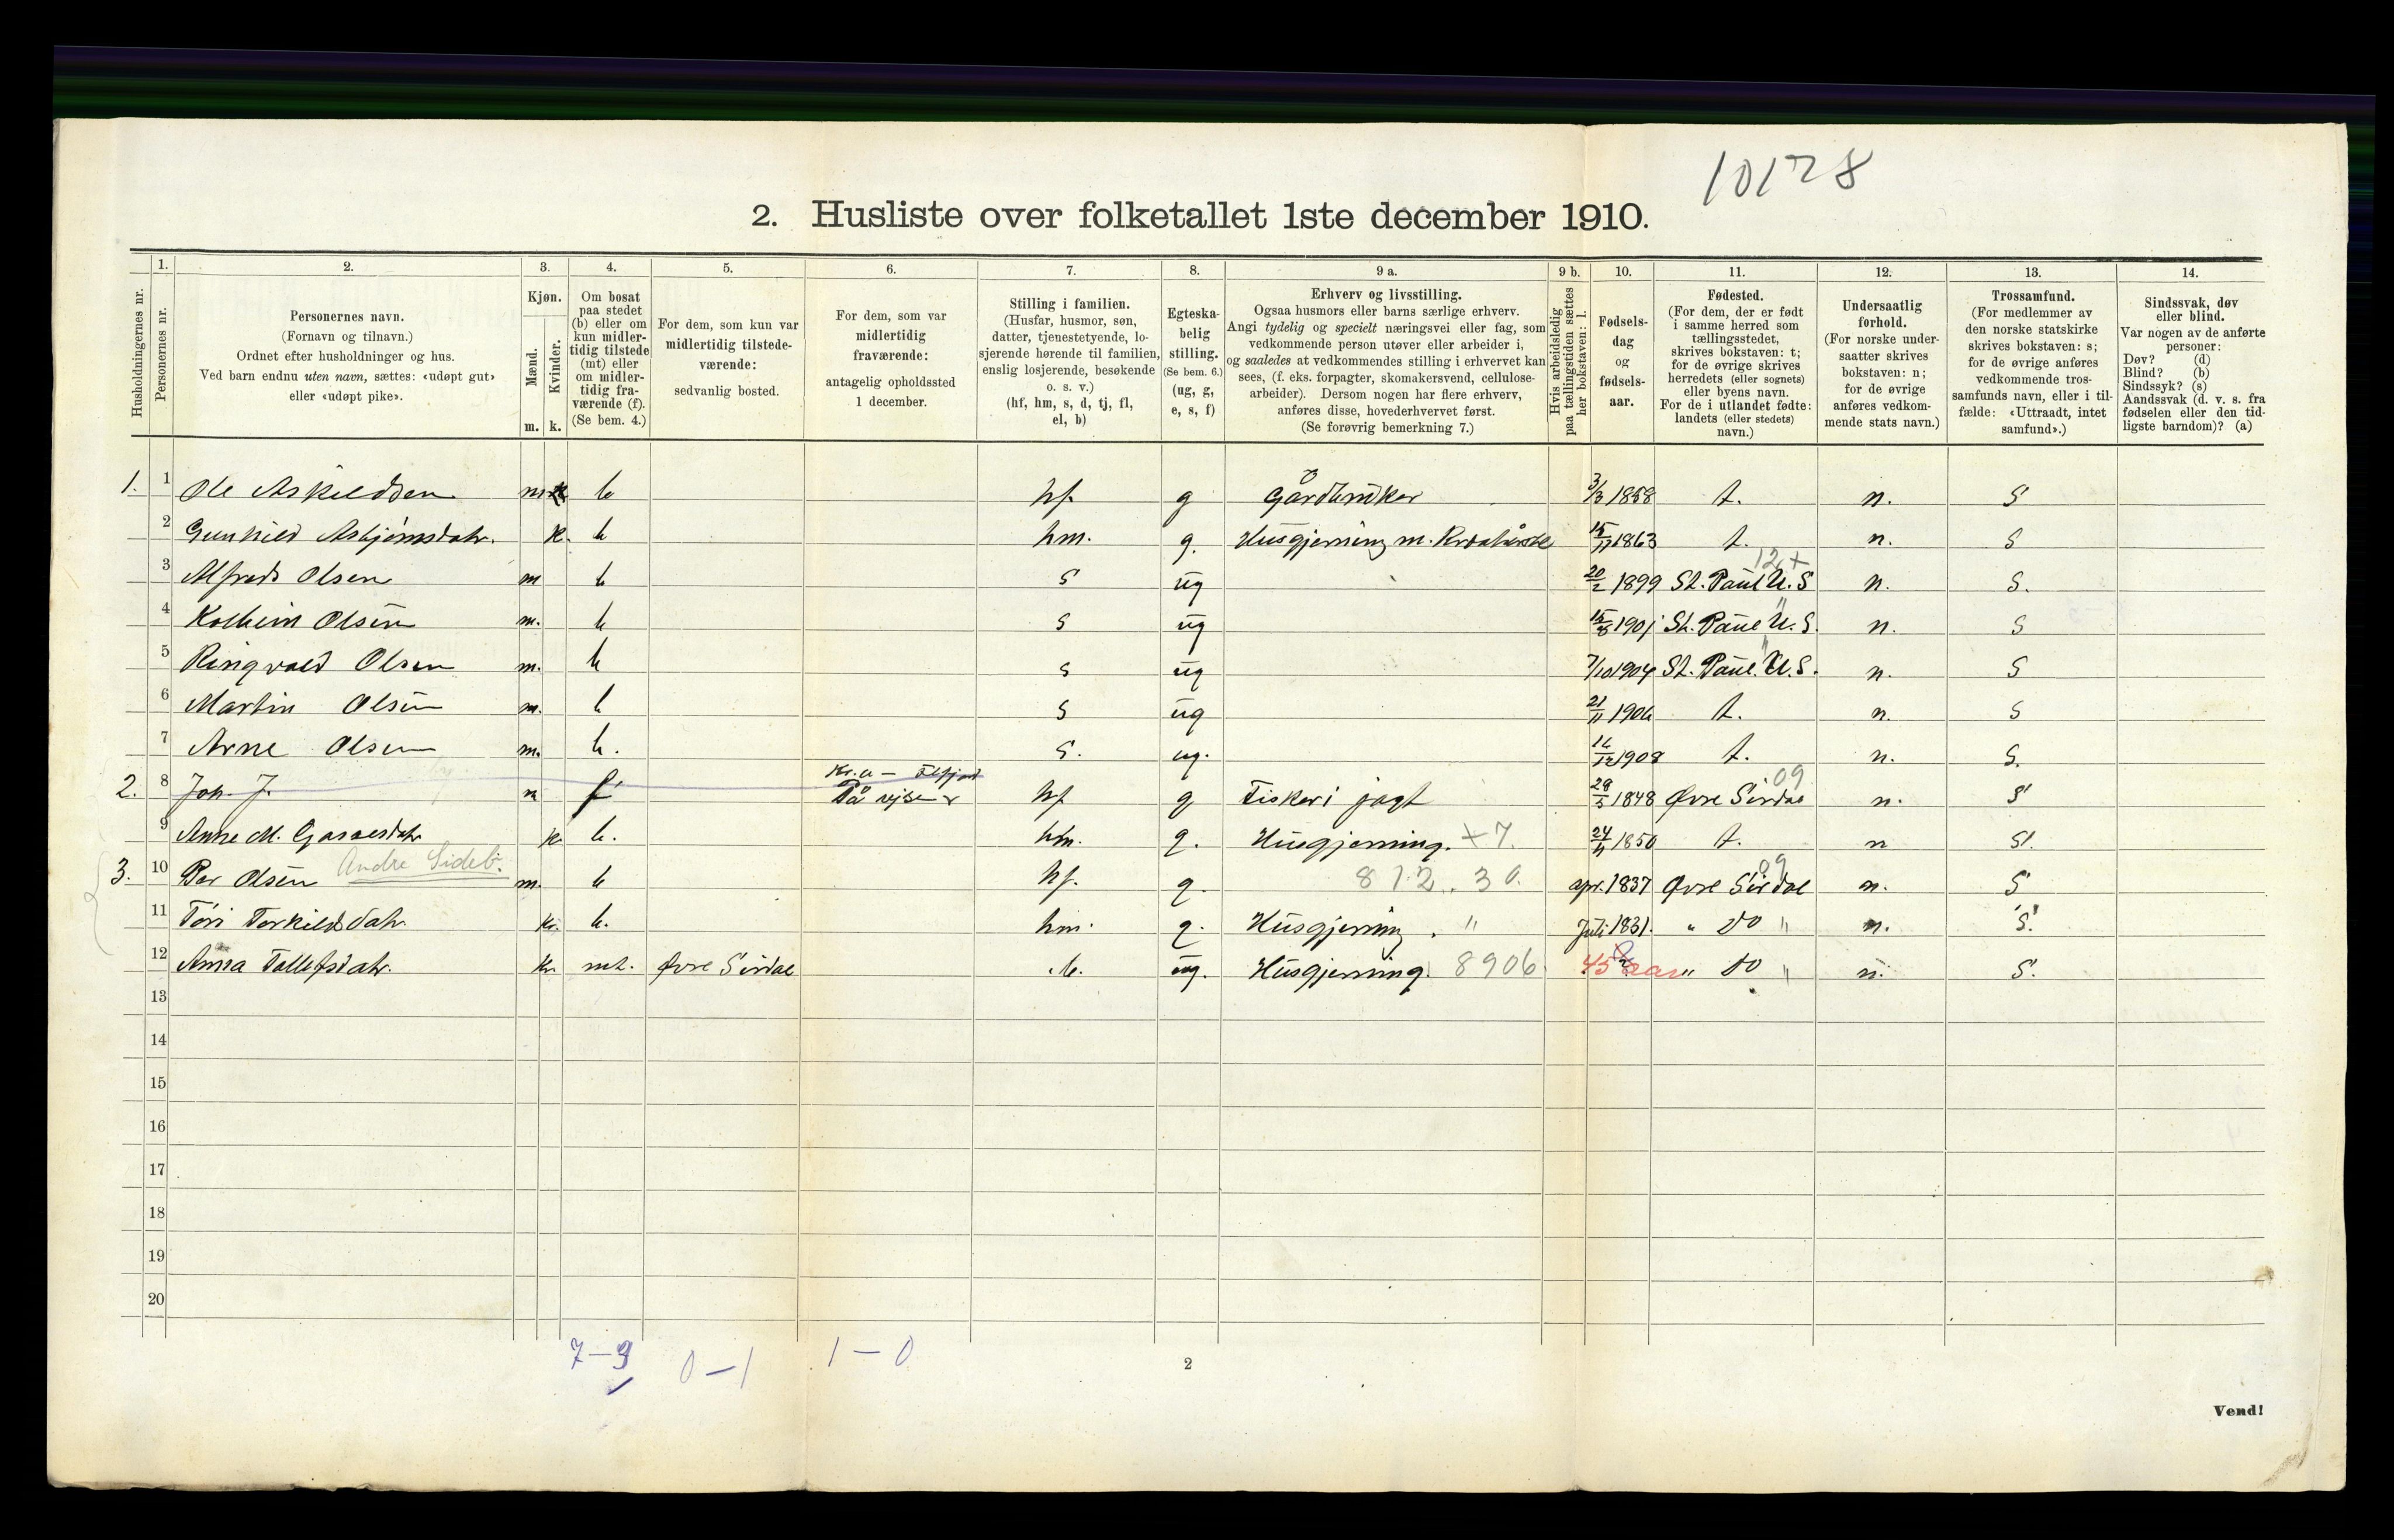 10128
2. Husliste over folketallet 1ste december 1910.
Husholdningernes nr.
1.
Personernes nr.
2.
Personernes navn.
(Fornavn og tilnavn.)
Ordnet efter husholdninger og hus.
Ved barn endnu uten navn, sættes: «udøpt gut»
eller «udøpt pike».
3.
Kjøn.
Mænd.
Kvinder.
m. k.
4.
Om bosat
paa stedet
(b) eller om
kun midler-
tidig tilstede
(mt) eller
om midler-
tidig fra-
værende (f).
(Se bem. 4.)
5.
For dem, som kun var
midlertidig tilstede-
værende:
sedvanlig bosted.
6.
For dem, som var
midlertidig
fraværende:
antagelig opholdssted
1 december.
7.
Stilling i familien.
(Husfar, husmor, søn,
datter, tjenestetyende, lo-
sjerende hørende til familien,
enslig losjerende, besøkende
o. s. v.)
(hf, hm, s, d, tj, fl,
el, b)
8.
Egteska-
belig
stilling.
(Se bem. 6.)
(ug, g,
e, s, f)
9 a.
Erhverv og livsstilling.
Ogsaa husmors eller barns særlige erhverv.
Angi tydelig og specielt næringsvei eller fag, som
vedkommende person utøver eller arbeider i,
og saaledes at vedkommendes stilling i erhvervet kan
sees, (f. eks. forpagter, skomakersvend, cellulose-
arbeider). Dersom nogen har flere erhverv,
anføres disse, hovederhvervet først.
(Se forøvrig bemerkning 7.)
9 b.
Hvis arbeidsledig
paa tællingstiden sættes
her bokstaven: l.
10.
Fødsels-
dag
og
fødsels-
aar.
11.
Fødested.
(For dem, der er født
i samme herred som
tællingsstedet,
skrives bokstaven: t;
for de øvrige skrives
herredets (eller sognets)
eller byens navn.
For de i utlandet fødte:
landets (eller stedets)
navn.)
12.
Undersaatlig
forhold.
(For norske under-
saatter skrives
bokstaven: n;
for de øvrige
anføres vedkom-
mende stats navn.)
13.
Trossamfund.
(For medlemmer av
den norske statskirke
skrives bokstaven: s;
for de øvrige anføres
vedkommende tros-
samfunds navn, eller i til-
fælde: «Uttraadt, intet
samfund».)
14.
Sindssvak, døv
eller blind.
Var nogen av de anførte
personer:
Døv? (d)
Blind? (b)
Sindssyk? (s)
Aandssvak (d. v. s. fra
fødselen eller den tid-
ligste barndom)? (a)
1. 1 Ole Askildsen m b hf. g Gårdbruker 3/3 1858 t. n. S
2 Gunhild Asbjørnsdatr. k. b hm. g. Husgjerning m. 15/11 1863 t. n. S
12+
3 Alfred Olsen m b S ug 20/2 1899 St. Paul U.S n. S.
4 Kolbein Olsen m. b S ug 15/8 1901 St. Paul U.S. n. S
5 Ringvald Olsen m. b s ug 7/10 1904 St. Paul. U.S. n. S
6 Martin Olsen m. b S ug 21/11 1906 t. n. S
7 Arne Olsen m. b. S. ug. 1908 t. n. S.
2. 8 Joh. J. m f På rejse hf g Fiskeri jagt 28/5 1848 Øvre Sirdal 09 n. S
9 Anne M. k b. hm. g. Husgjerning. +7. 24/11 1850 t. n S.
3. 10 Per Olsen Andre Sideb. m. b hf. g. 812. 30. apr. 1837 Øvre Sirdal 09 n. S
11 Tori Torkildsdatr. k. b. hm. g. Husgjerning. " Juli 1831. " do " n. S.
12 Anna Tollefsdatr. k. mt. Øvre Sirdal b. ug. Husgjerning. 8906 45 aar " do " n. S.
13
14
15
16
17
18
19
20
7–3 0–1 1–0
2
Vend!